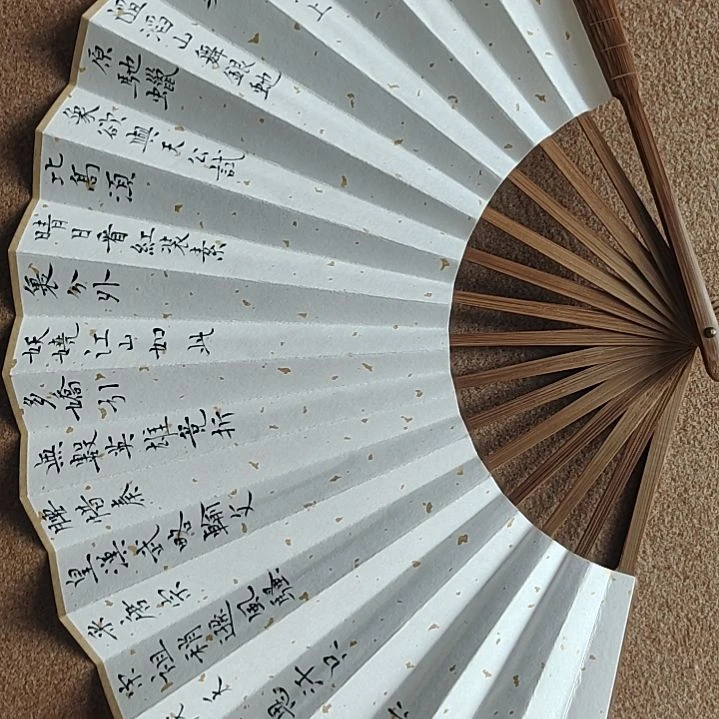 上
滔滔山舞銀虵
原馳蠟
象欲與天公試
比高須
晴日看紅裝素
裹分外
妖嬈江山如此
多嬌引
無數英雄竟折
腰惜秦
皇漢武略輸文
采唐宗
宋祖稍遜風騷
天
思汗只